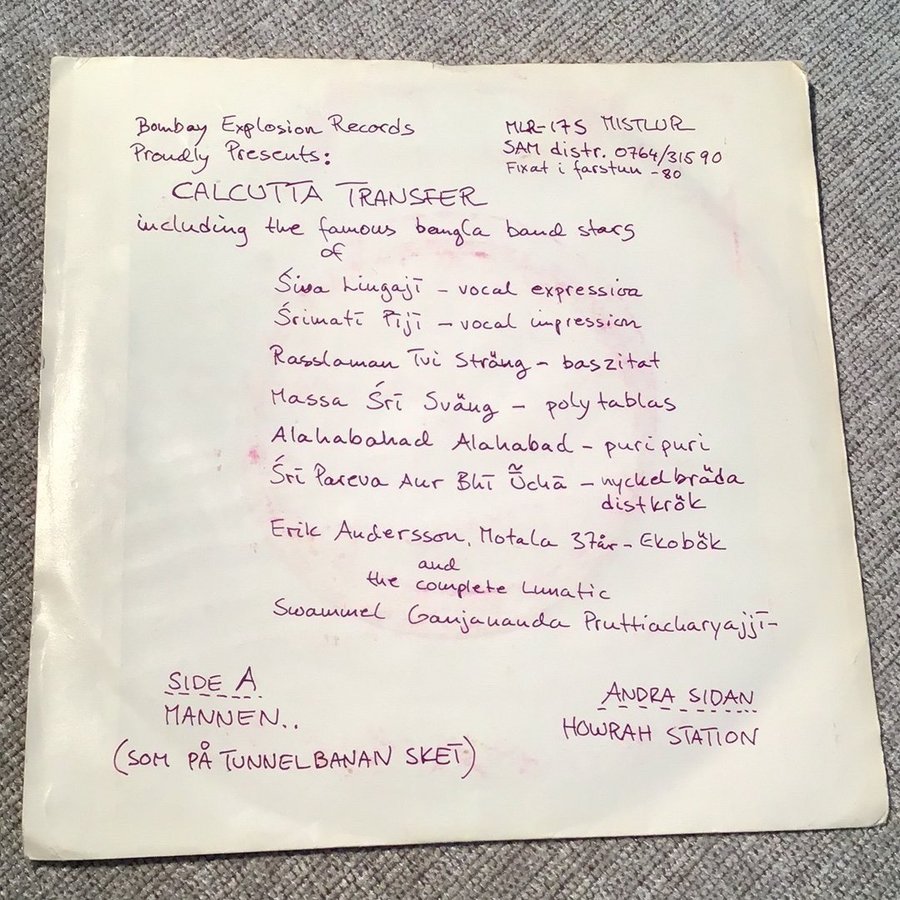 Bombay Explosion Records
Proudly Presents:
MLR-17S MISTLUR
SAM distr. 0764/31590
Fixat i farstun -80
CALCUTTA TRANSFER
including the famous bangla band stars
of
Śiwa Lingajī - vocal expression
Śrimatī Pījī - vocal impression
Rasslaman Tvi Sträng - baszitat
Massa Śrī Sväng - poly tablas
Alahabahad Alahabad - puri puri
Śrī Pareva Aur Bhī Ūchā - nyckelbräda
distkrök
Erik Andersson, Motala 37år - Ekobök
and
the complete Lunatic
Swammel Ganjananda Pruttiacharyajjī-
SIDE A
MANNEN..
(SOM PÅ TUNNELBANAN SKET)
ANDRA SIDAN
HOWRAH STATION